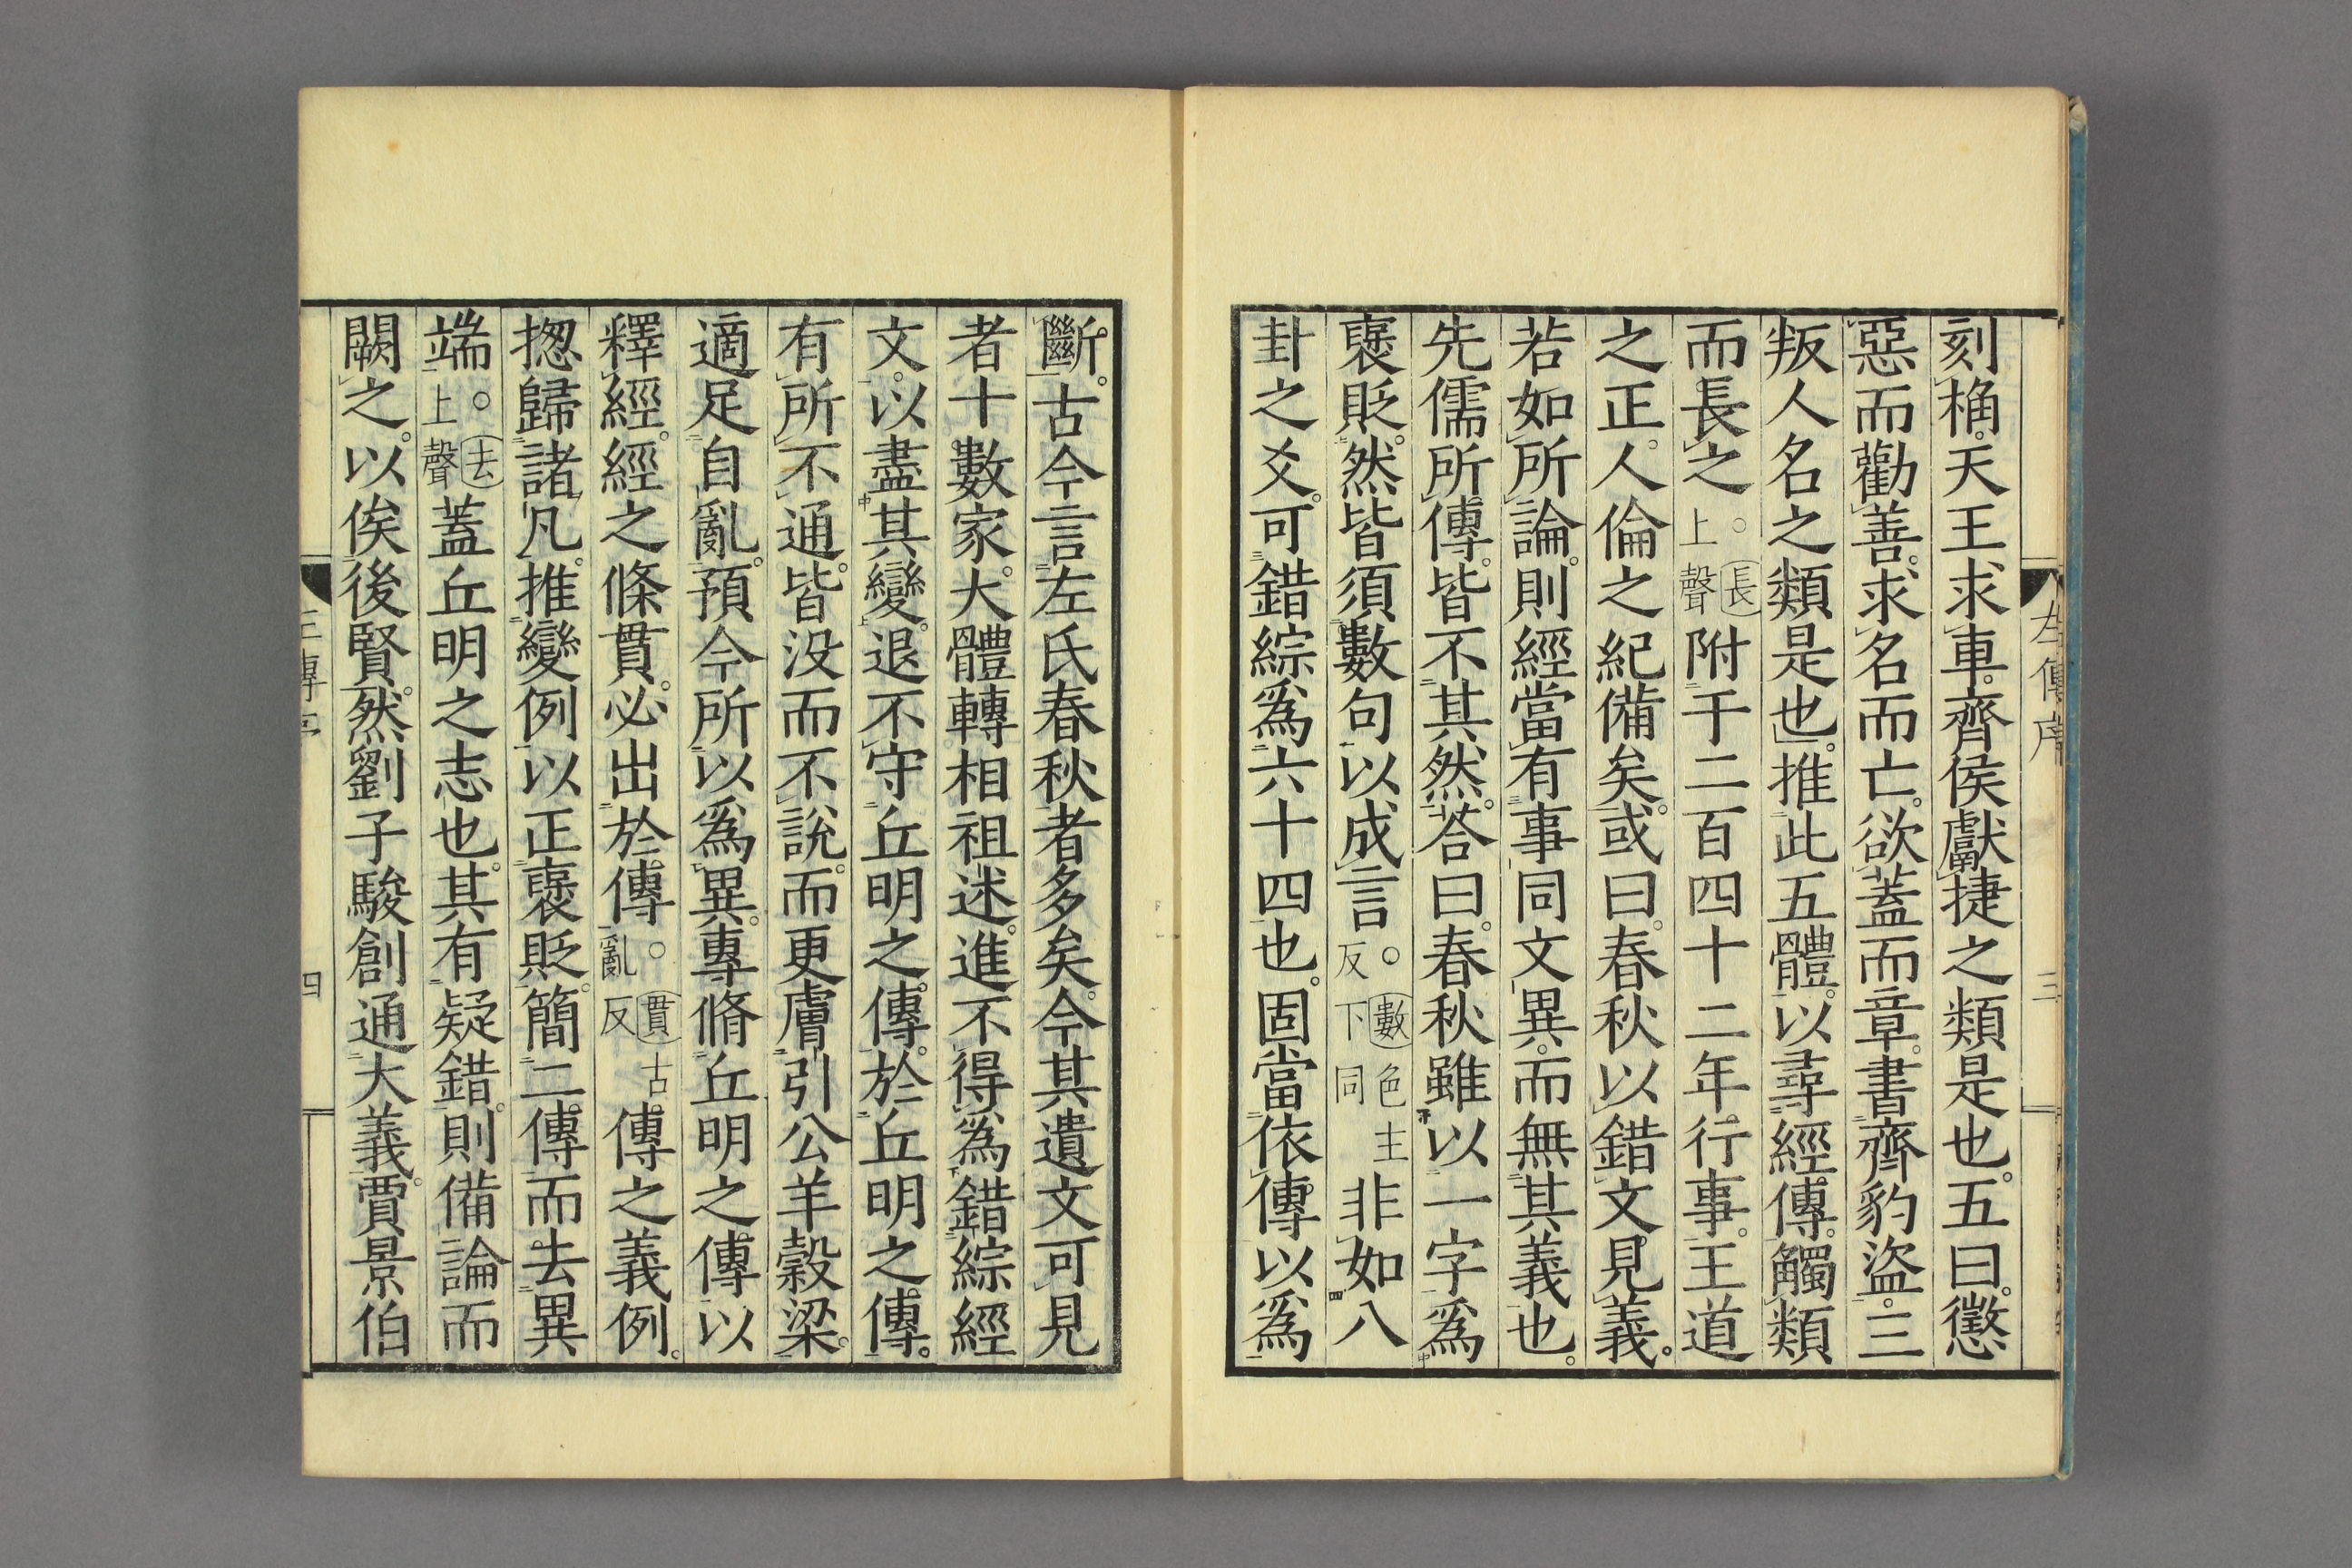 左傳序 三
刻桷。天王求車。齊侯獻捷之類是也。五曰。懲
惡而勸善。求名而亡。欲蓋而章。書齊豹盜。三
叛人名之類是也。推此五體。以尋經傳。觸類
而長之。長上聲附于二百四十二年行事。王道
之正。人倫之紀備矣。或曰。春秋以錯文見義。
若如所論。則經當有事同文異。而無其義也。
先儒所傳。皆不其然。荅曰。春秋雖以一字爲
褒貶。然皆須數句以成言。數色主反下同非如八
卦之爻。可錯綜爲六十四也。固當依傳以爲
斷。古今言左氏春秋者多矣。今其遺文可見
者十數家。大體轉相祖述。進不得爲錯綜經
文。以盡其變。退不守丘明之傳。於丘明之傳。
有所不通。皆没而不說。而更膚引公羊穀梁。
適足自亂。預今所以爲異。專脩丘明之傳以
釋經。經之條貫。必出於傳。貫古亂反傳之義例。
揔歸諸凡。推變例以正褒貶。簡二傳而去異
端。去上聲蓋丘明之志也。其有疑錯。則備論而
闕之。以俟後賢。然劉子駿創通大義。賈景伯
四